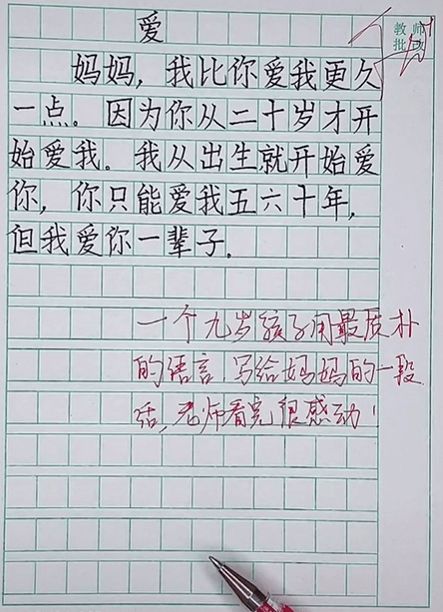 爱
妈妈，我比你爱我更久
一点。因为你从二十岁才开
始爱我。我从出生就开始爱
你，你只能爱我五六十年，
但我爱你一辈子.
教师
批改
一个九岁孩子用最质朴
的语言,写给妈妈的一段
话,老师看完很感动!